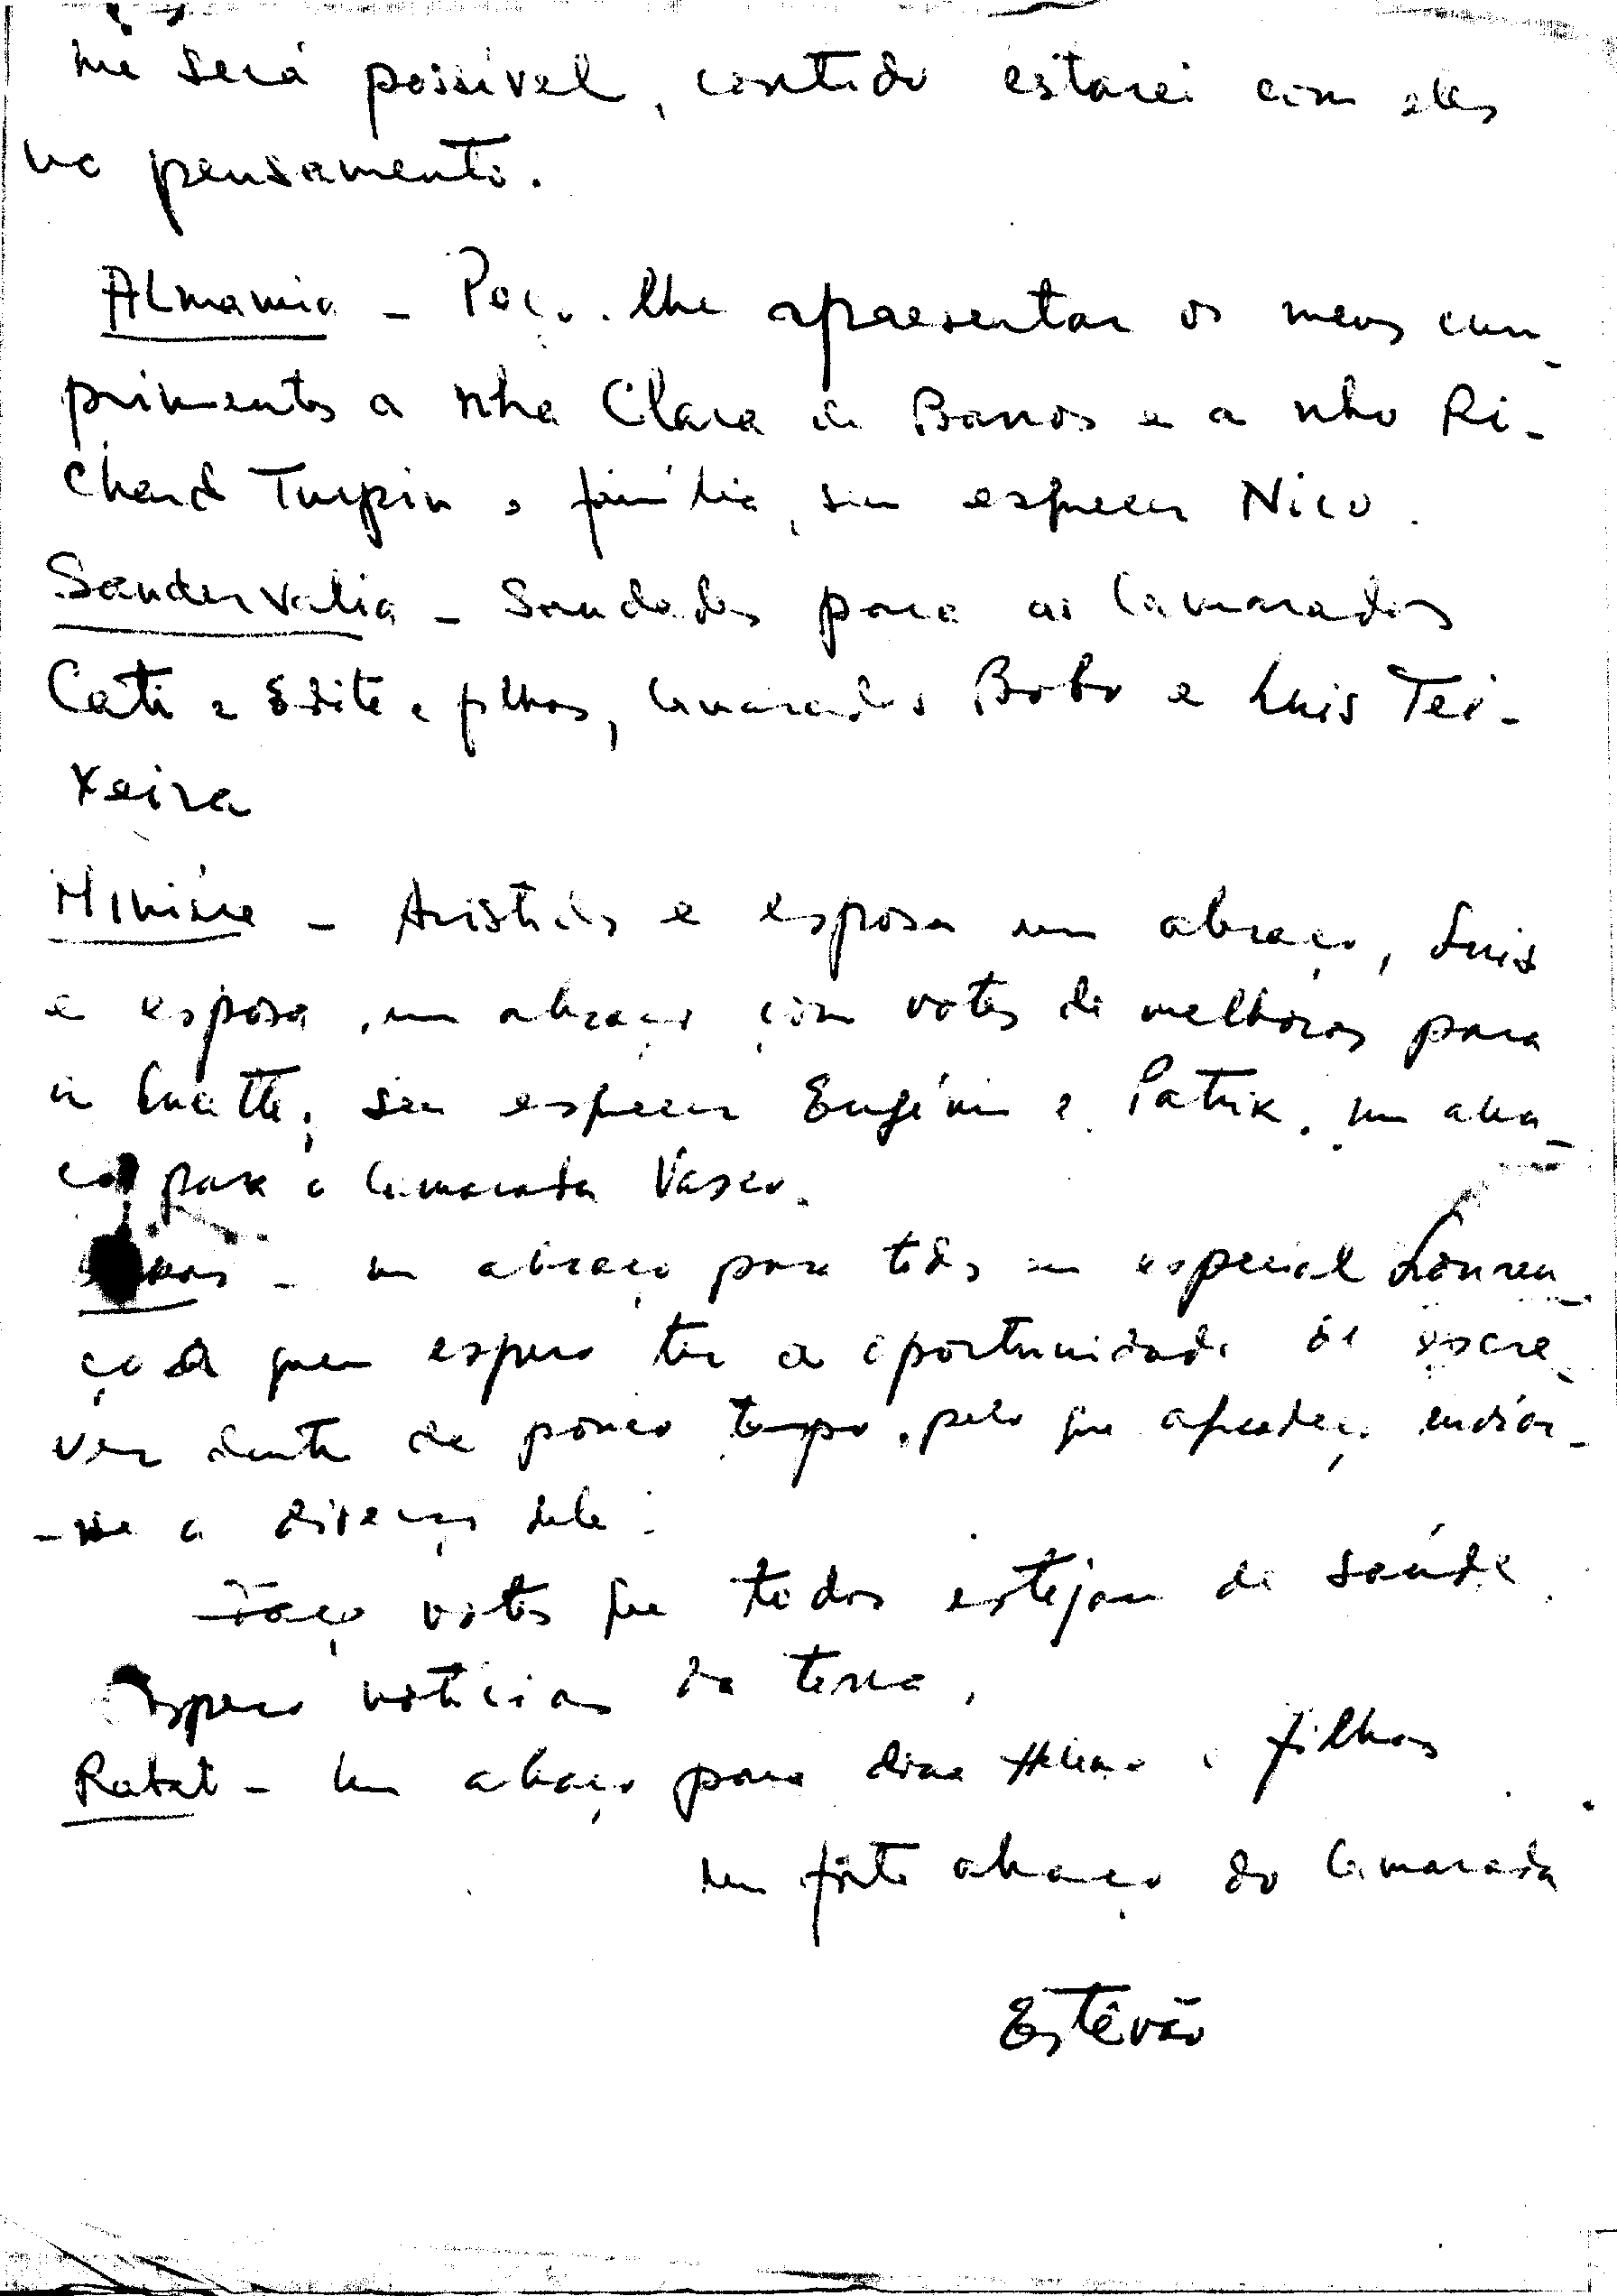 me será possível, contudo estarei com eles
no pensamento.
Almamia - Peço-lhe apresentar os meus cum-
primentos a nha Clara de Barros e a nho Ri-
chard Turpin e família, sem esquecer Nico.
Sandervalia - Saudades para as camaradas
Cati e Edite e filhos, camaradas Bobo e Luis Tei-
xeira
Minière - Aristides e esposa um abraço, Luis
e esposa, um abraço com votos de melhoras para
sem esquecer Eugénio e Patrik. um abra-
ço para o camarada Vasco.
- um abraço para todos em especial Louren-
ço a quem espero ter a oportunidade de escre-
ver dentro de pouco tempo, pelo que agradeço enviar-
-me a direcção dele.
Faço votos que todos estejam de saúde.
Espero notícias da terra.
Rabat - Um abraço para dona Helena e filhos
um forte abraço do camarada
Estêvão